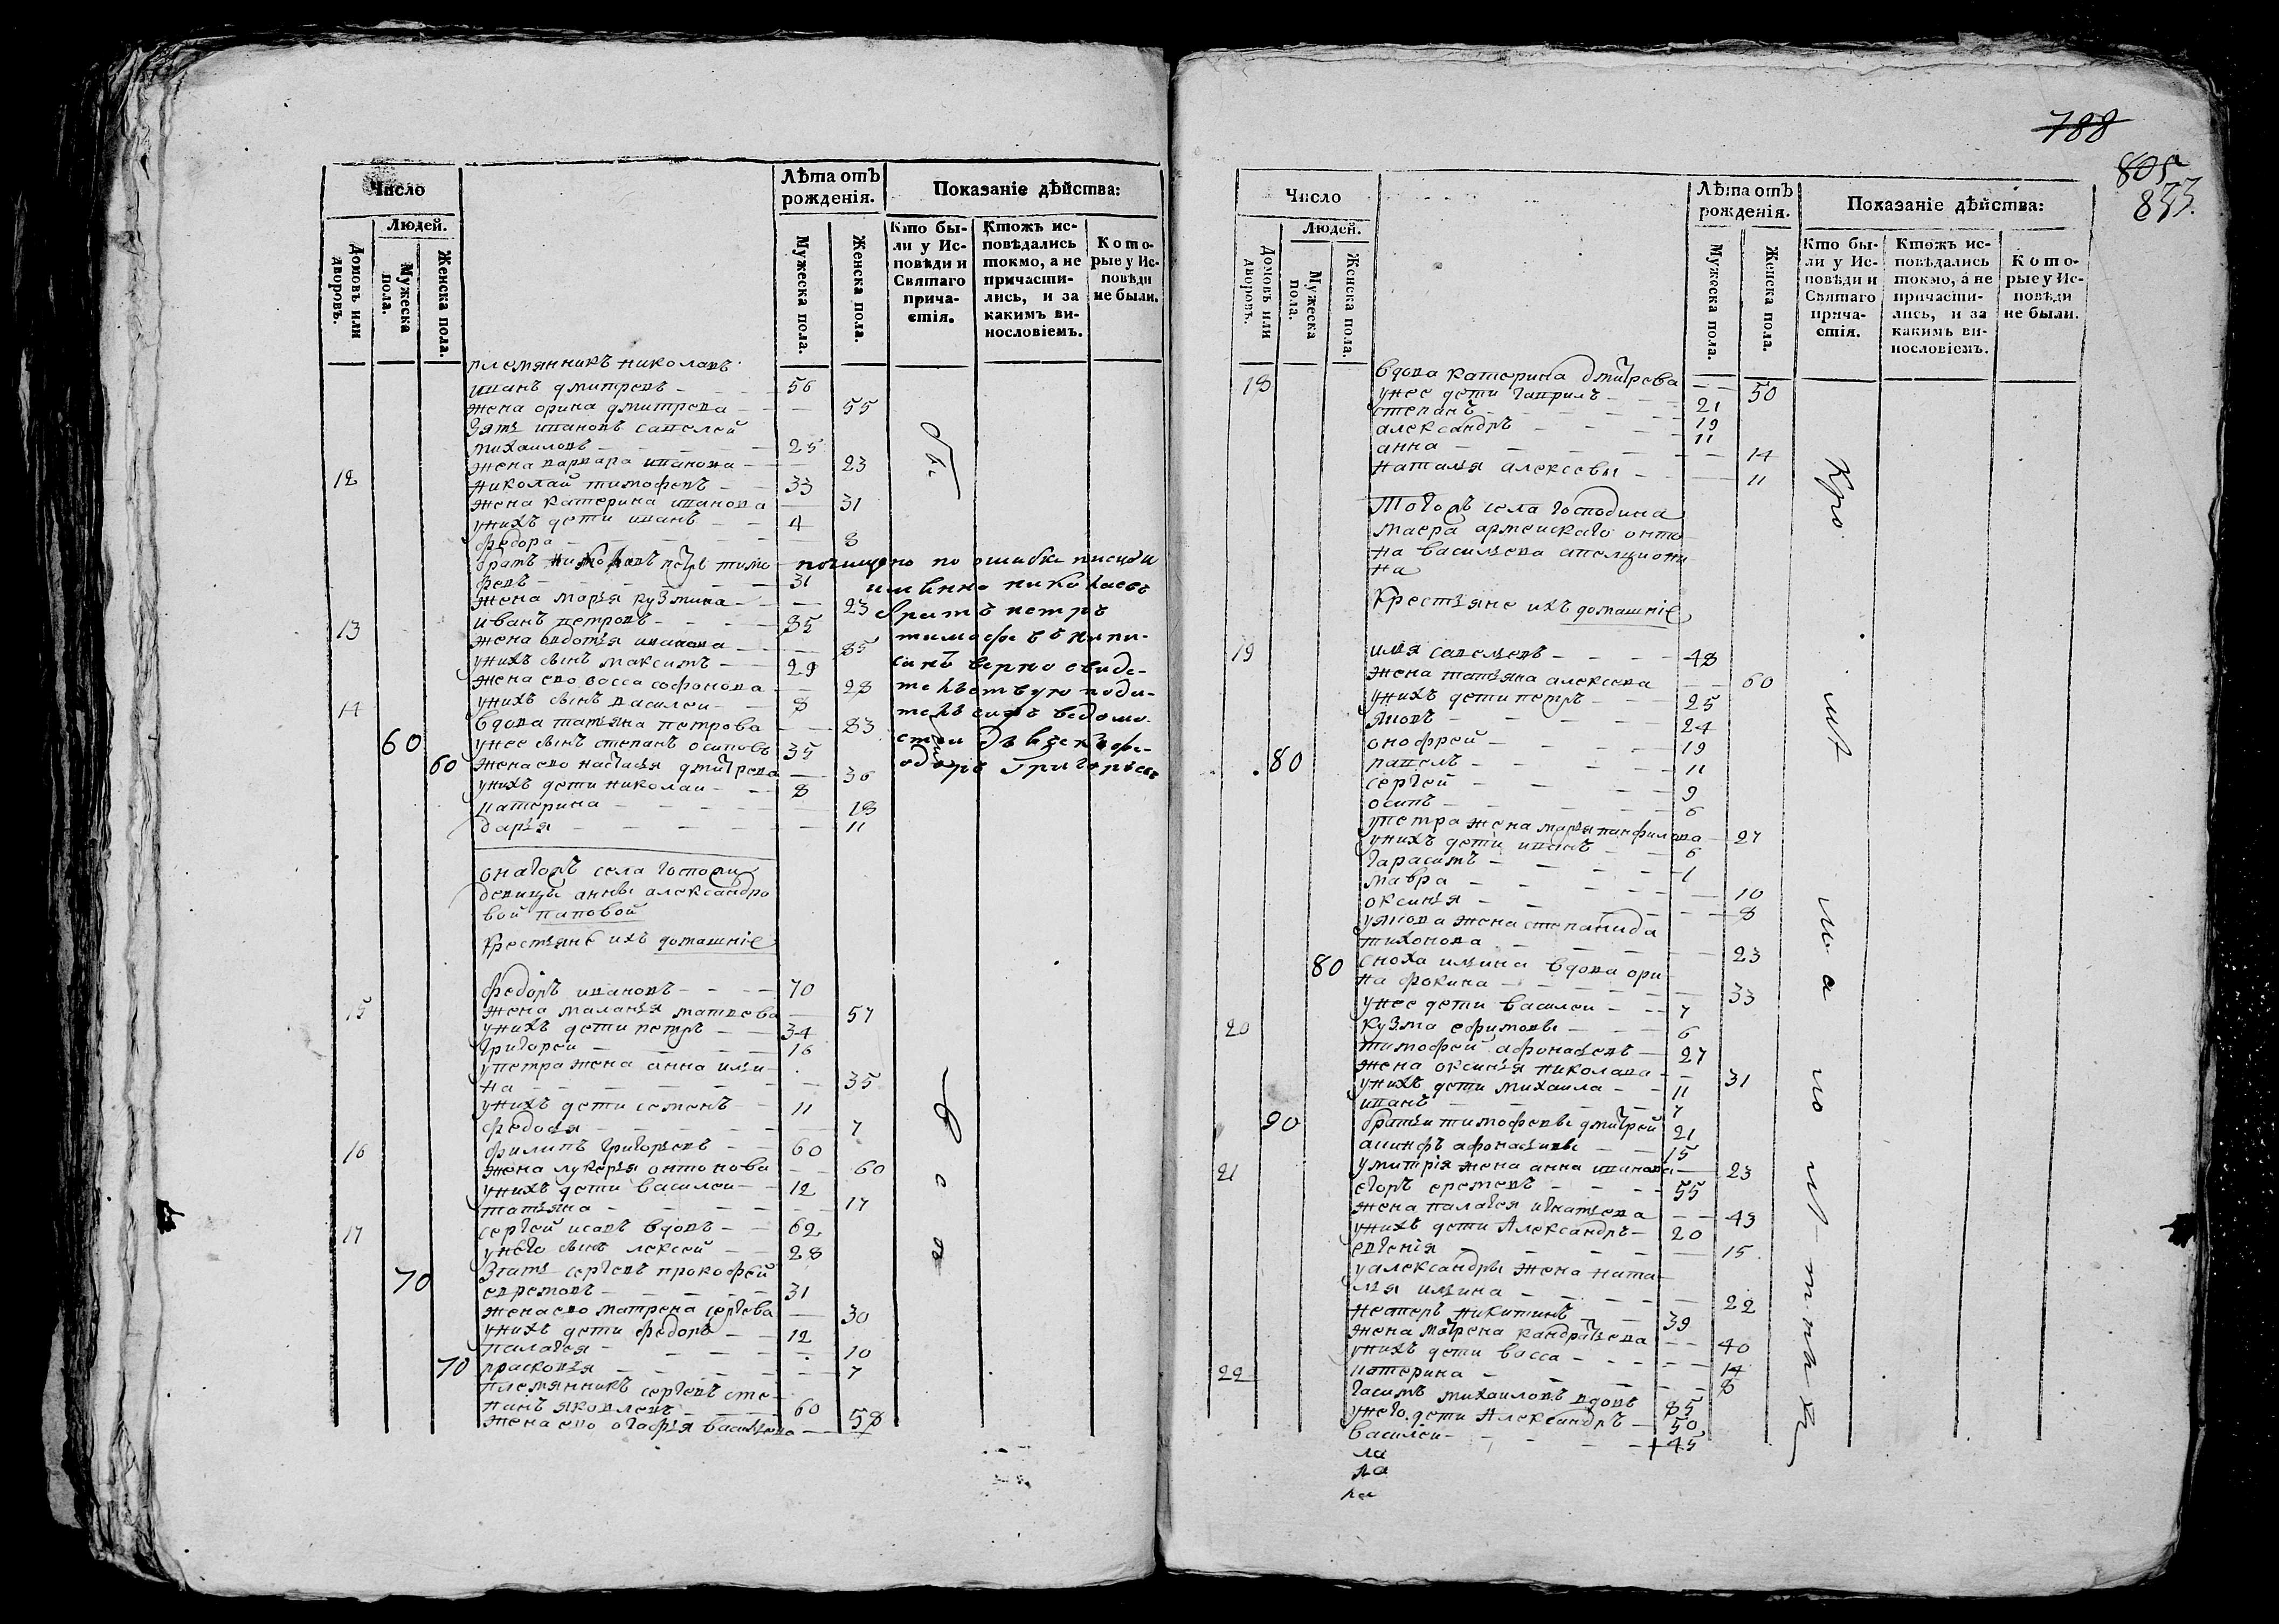 Число
Лѣта отъ рожденія.
Показаніе дѣйства:
Людей.
Домовъ или дворовъ.
Мужеска пола.
Женска пола.
Мужеска пола.
Женска пола.
Кто были у Исповѣди и Святаго причастія.
Ктожъ исповѣдались токмо, а не причастились, и за какимъ винословіемъ.
Которые у Исповѣди не были.
племянникъ николаевъ
иванъ дмитревъ 56
жена орина дмитрева 55
Зять ивановъ савелей
михаиловъ 25
жена варвара иванова 23
12 николай тимофевъ 33
жена катерина иванова 31
унихъ дети иванъ 4
федора 8
братъ петръ тимо
февъ 31
жена марья кузмина 23
почищено по ошибке
имянно николаевъ
братъ петръ
13 иванъ петровъ 85
жена авдотья иванова 85
унихъ сынъ максимъ 29
жена ево васса софонова 28
унихъ сынъ василеи 8
14 вдова татьяна петрова 83
60 унее сынъ степанъ осиповъ 35
60 жена ево настасья дмитрева 36
унихъ дети николаи 8
катерина 18
дарья 11
оногожъ села госпожи
девицы анны александро
вой паповой
Крестьяне ихъ домашніе
федоръ ивановъ 70
15 жена маланья матвева 57
унихъ дети петръ 34
григореи 16
упетра жена анна ильи-
на 35
унихъ дети семенъ 11
федосья 7
16 филипъ григорьевъ 60
жена лукерья онтонова 60
унихъ дети василеи 12
татьяна 17
17 сергей исаевъ вдовъ 62
унего сынъ лексей 28
70 Зять сергевъ прокофей
евремовъ 31
жена ево матрена сергева 30
унихъ дети федоръ 12
палагея 10
70 прасковья 7
племянникъ сергевъ сте-
панъ яковлевъ 60
жена ево огафья васильева 58
788
805
833.
Число
Лѣта отъ рожденія.
Показаніе дѣйства:
Людей.
Домовъ или дворовъ.
Мужеска пола.
Женска пола.
Мужеска пола.
Женска пола.
Кто были у Исповѣди и Святаго причастія.
Ктожъ исповѣдались токмо, а не причастились, и за какимъ винословіемъ.
Которые у Исповѣди не были.
18 вдова катерина дмитрева 50
унее дети гаврилъ 21
степанъ 19
александръ 11
анна 14
наталья алексевы 11
Тогожъ села господина
маера армейскаго онто
на васильева
на
Крестьяне ихъ домашніе
19 илья савельевъ 48
жена татьяна алексева 60
унихъ дети петръ 25
яковъ 24
онофрей 19
80 павелъ 11
сергей 9
осипъ 6
упетра жена марья панфилова 27
унихъ дети иванъ 6
гарасимъ 1
мавра 10
оксинья 8
уякова жена степанида
тихонова 23
80 сноха ильина вдова ори-
на фокина 33
унее дети василеи 7
20 кузма ефимовы 6
тимофей афонасьевъ 27
жена оксинья николаева 31
унихъ дети михаила 11
иванъ 7
90 братьи тимофевы дмитрей 21
акинфъ афонасьевы 15
21 удмитрія жена анна иванова 23
егоръ еремевъ 55
жена палагея игнатьева 43
унихъ дети Александръ 20
евгенія 15
уалександры жена ната-
лья ильина 22
несторъ никитинъ 39
жена матрена кандратьева 40
унихъ дети васса 14
22 катерина 8
гасимъ михаиловъ вдовъ 85
унего дети Александръ 50
василеи 45